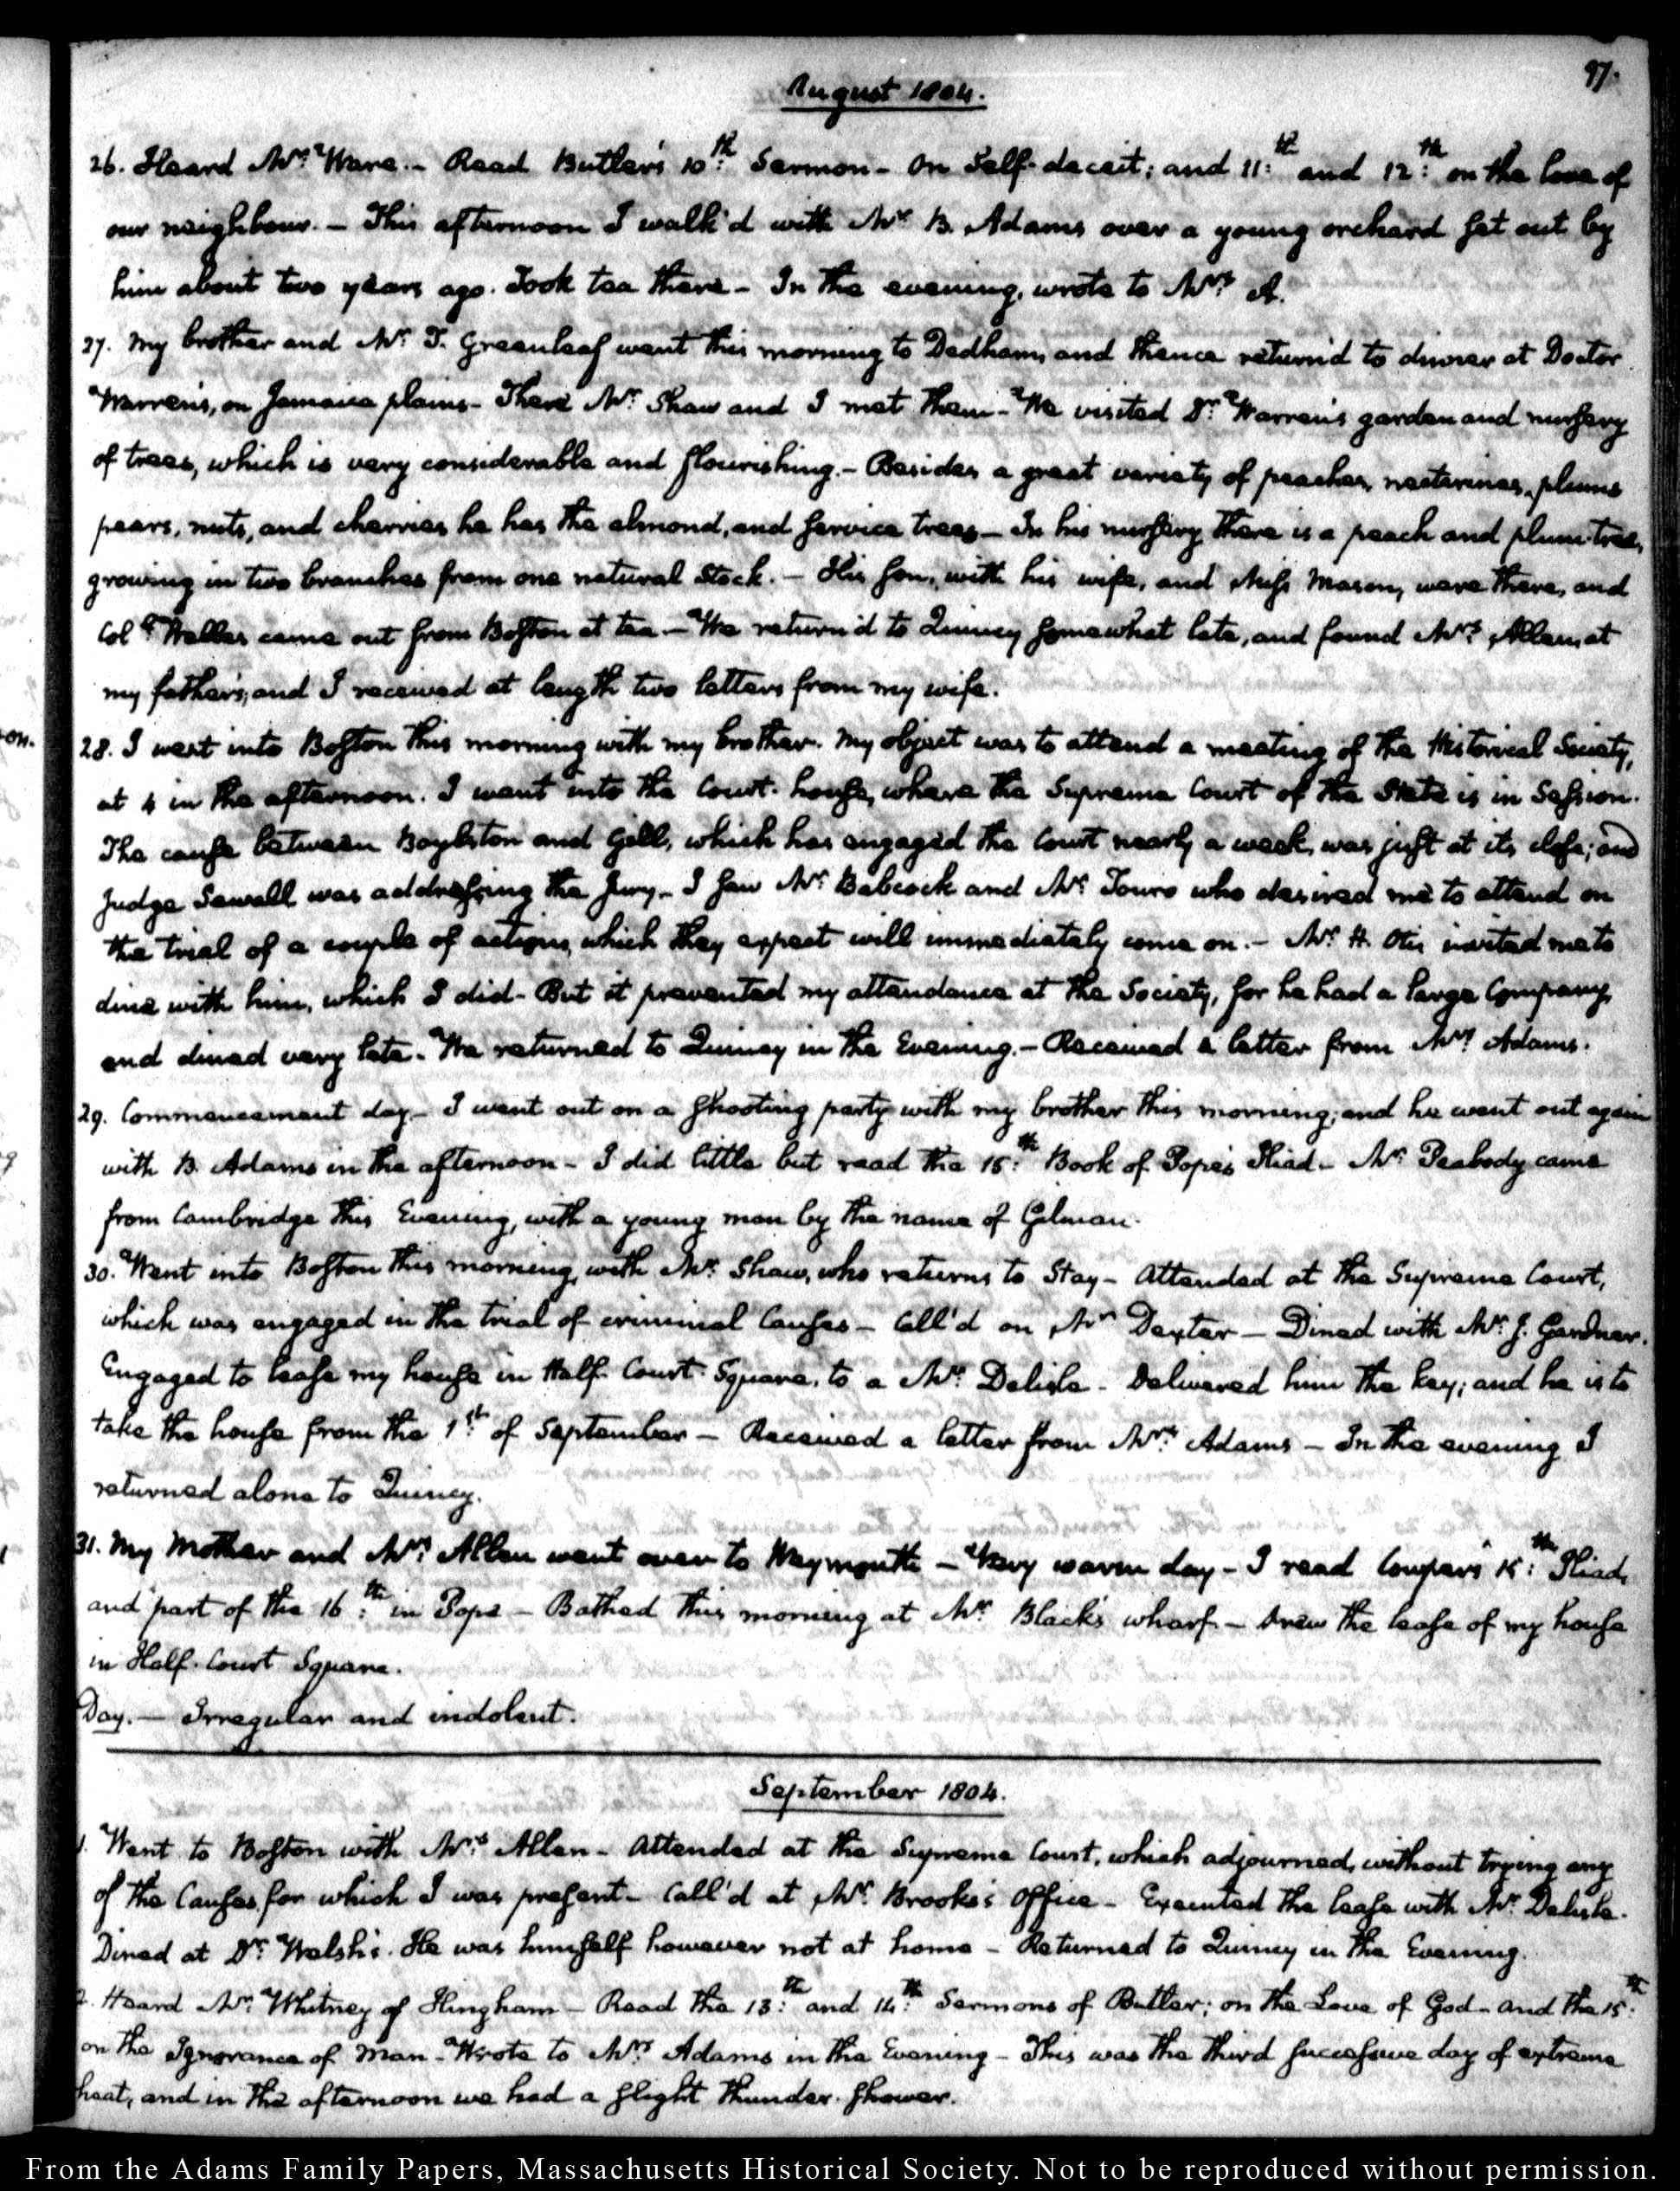 97.
August 1804.
26. Heard Mr. Ware.- Read Butler's 10th. Sermon- On Self-deceit; and 11th. and 12th. on the love of
our neighbour. - This afternoon I walk'd with Mr. B. Adams over a young orchard set out by
him about two years ago. Took tea there - In the evening, wrote to Mrs. A.
27. My brother and Mr. T. Greenleaf went this morning to Dedham, and thence return'd to dinner at Doctor
Warren's, on Jamaica plains- There Mr. Shaw and I met them- We visited Dr. Warren's garden and nursery
of trees, which is very considerable and flourishing.- Besides a great variety of peaches, nectarines, plums
pears, nuts, and cherries he has the almond, and service trees- In his nursery there is a peach and plum-tree,
growing in two branches from one natural stock. - His son, with his wife, and Miss Mason, were there, and
Coll. Welles came out from Boston at tea - We return'd to Quincy somewhat late, and found Mrs. Allen, at
my father's; and I received at length two letters from my wife.
on.
28. I went into Boston this morning with my brother. My object was to attend a meeting of the Historical Society,
at 4 in the afternoon. I went into the Court-house, where the Supreme Court of the State is in Session.
The cause between Boylston and Gill, which has engaged the Court nearly a week, was just at its close; and
Judge Sewall was addressing the Jury- I saw Mr. Babcock and Mr. Touro who desired me to attend on
the trial of a couple of actions, which they expect will immediately come on.- Mr. H. Otis invited me to
dine with him, which I did- But it prevented my attendance at the Society, for he had a large Company,
and dined very late. We returned to Quincy in the Evening.- Received a letter from Mrs. Adams.
29. Commencement day- I went out on a shooting party with my brother this morning; and he went out again
with B. Adams in the afternoon- I did little but read the 15th. Book of Pope's Iliad- Mr. Peabody came
from Cambridge this Evening, with a young man by the name of Gilman.
30. Went into Boston this morning, with Mr. Shaw, who returns to Stay- Attended at the Supreme Court,
which was engaged in the trial of criminal Causes- Call'd on Mr. Dexter- Dined with Mr. J. Gardner.
Engaged to lease my house in Half-Court-Square, to a Mr. Delisle- Delivered him the key; and he is to
take the house from the 1st. of September - Received a letter from Mrs. Adams - In the evening I
returned alone to Quincy.
31. My Mother and Mrs. Allen went over to Weymouth - Very warm day- I read Cowper's 15th. Iliad,
and part of the 16th. in Pope - Bathed this morning at Mr. Black's wharf- Drew the lease of my house
in Half-Court Square.
Day. - Irregular and indolent.
September 1804.
1. Went to Boston with Mrs. Allen- Attended at the Supreme Court, which adjourned, without trying any
of the Causes, for which I was present- Call'd at Mr. Brooks's Office- Executed the lease with Mr. Delisle.
Dined at Dr. Welsh's. He was himself however not at home - Returned to Quincy in the Evening.
2. Heard Mr. Whitney of Hingham- Read the 13th. and 14th. Sermons of Butler; on the Love of God- and the 15th.
on the Ignorance of Man- Wrote to Mrs. Adams in the Evening- This was the third successive day of extreme
heat, and in the afternoon we had a slight thunder-shower.
From the Adams Family Papers, Massachusetts Historical Society. Not to be reproduced without permission.